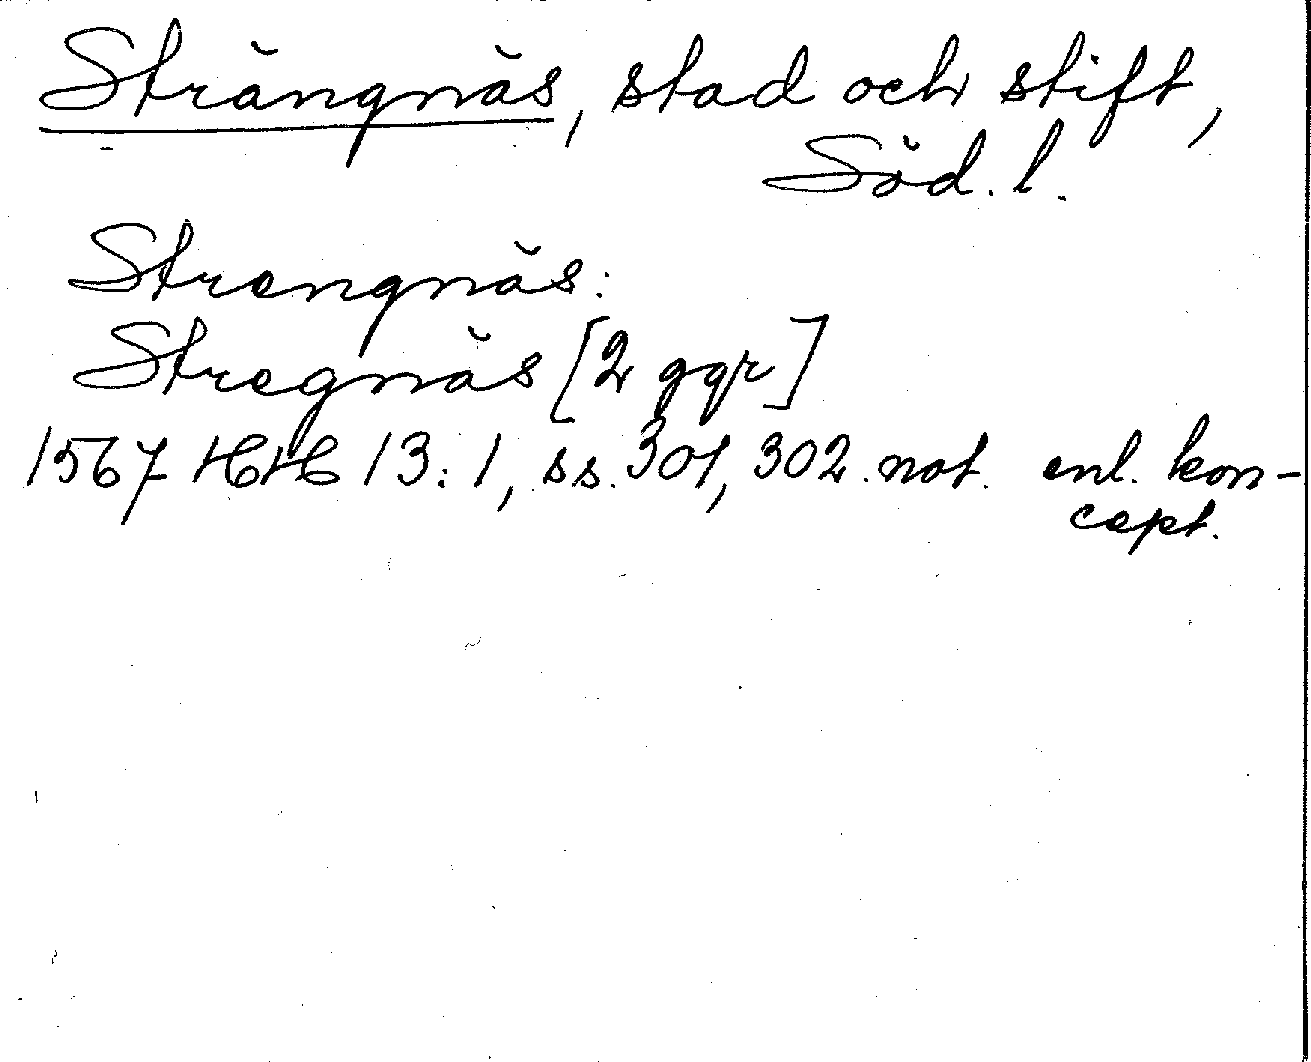 Strängnäs, stad och stift,
Söd. l.
Strengnäs:
Stregnäs [2 ggr]
1567 HH 13:1, ss. 301, 302. not. enl. kon-
cept.